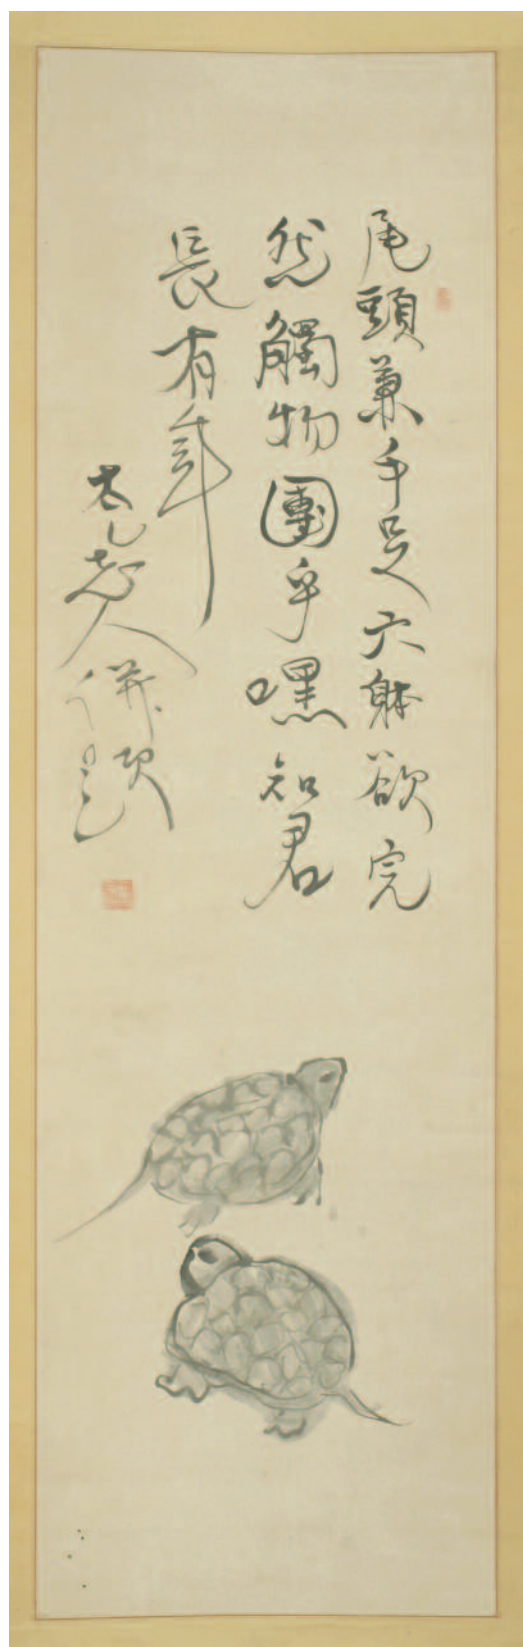 尾頭兼手足六躰欲完
然觸物團乎嘿知君
長有年
老人併題